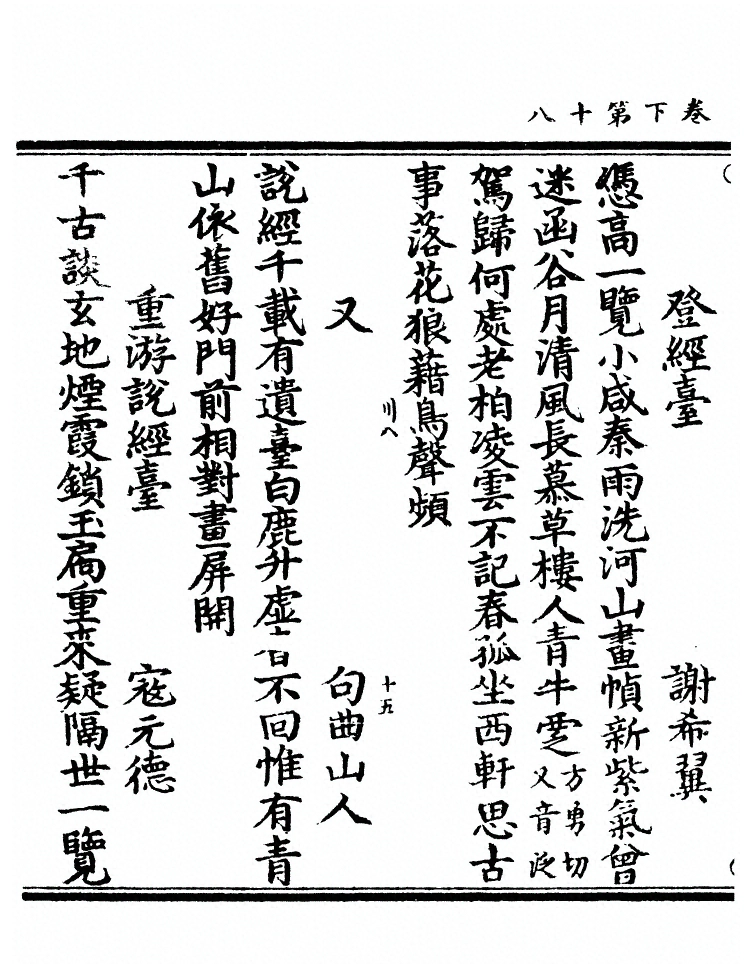 卷下第十八
登經臺 謝希翼
憑高一覽小咸秦雨洗河山畫幀新紫氣曾
迷函谷月清風長慕草樓人青牛覂方勇切又音泛
駕歸何處老柏凌雲不記春孤坐西軒思古
事落花狼藉鳥聲頻
川八 十五
又 句曲山人
說經千載有遺臺白鹿升虛不回惟有青
山依舊好門前相對畫屏開
重游說經臺 寇元德
千古談玄地煙霞鎖玉扃重來疑隔世一覽